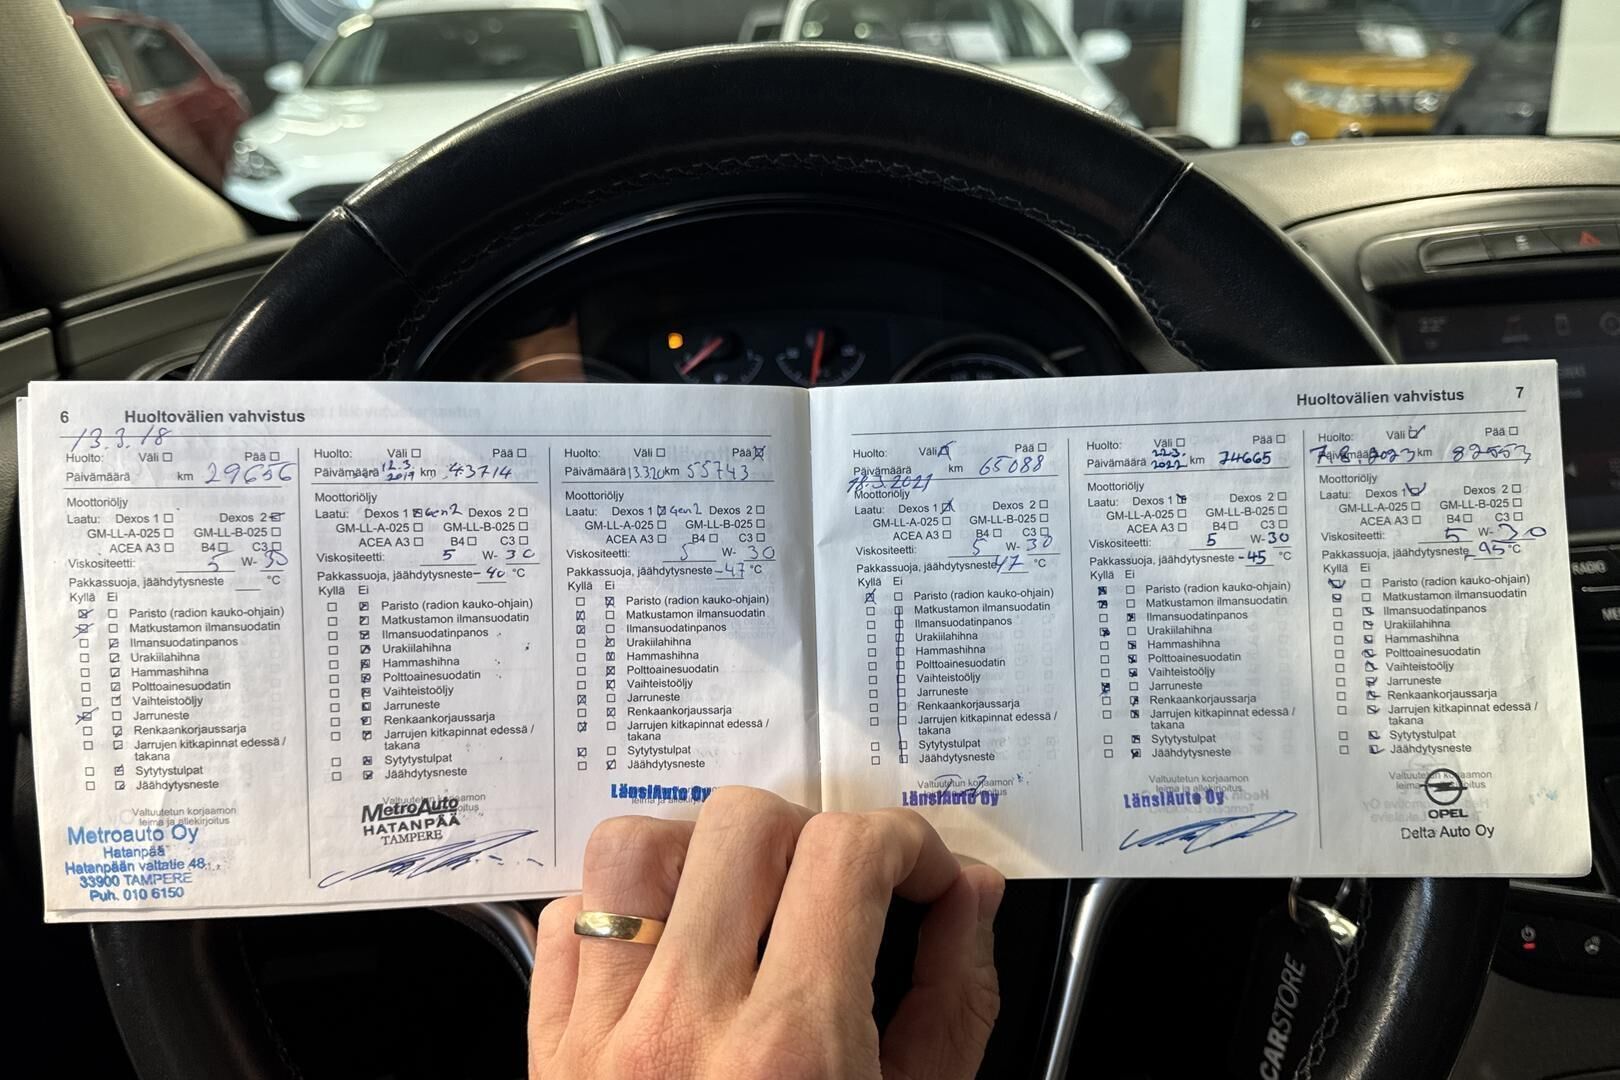 6 Huoltovälien vahvistus
13.3.18
Huolto: Väli ☐ Pää ☐
Päivämäärä km 29656
Moottoriöljy
Laatu: Dexos 1 ☐ Dexos 2 ☒
GM-LL-A-025 ☐ GM-LL-B-025 ☐
ACEA A3 ☐ B4 ☐ C3 ☐
Viskositeetti: 5 W- 30
Pakkassuoja, jäähdytysneste °C
Kyllä Ei
☒ ☐ Paristo (radion kauko-ohjain)
☒ ☐ Matkustamon ilmansuodatin
☐ ☒ Ilmansuodatinpanos
☐ ☒ Urakiilahihna
☐ ☒ Hammashihna
☐ ☒ Polttoainesuodatin
☐ ☒ Vaihteistoöljy
☒ ☐ Jarruneste
☐ ☒ Renkaankorjaussarja
☐ ☒ Jarrujen kitkapinnat edessä /
takana
☐ ☒ Sytytystulpat
☐ ☒ Jäähdytysneste
Valtuutetun korjaamon
leima ja allekirjoitus
Metroauto Oy
Hatanpää
Hatanpään valtatie 48
33900 TAMPERE
Puh. 010 6150
Huolto: Väli ☐ Pää ☐
Päivämäärä 12.3.2019 km 43714
Moottoriöljy
Laatu: Dexos 1 ☒ Gen2 Dexos 2 ☐
GM-LL-A-025 ☐ GM-LL-B-025 ☐
ACEA A3 ☐ B4 ☐ C3 ☐
Viskositeetti: 5 W- 30
Pakkassuoja, jäähdytysneste -40 °C
Kyllä Ei
☐ ☒ Paristo (radion kauko-ohjain)
☐ ☒ Matkustamon ilmansuodatin
☐ ☒ Ilmansuodatinpanos
☐ ☒ Urakiilahihna
☐ ☒ Hammashihna
☐ ☒ Polttoainesuodatin
☐ ☒ Vaihteistoöljy
☐ ☒ Jarruneste
☐ ☒ Renkaankorjaussarja
☐ ☒ Jarrujen kitkapinnat edessä /
takana
☐ ☒ Sytytystulpat
☐ ☒ Jäähdytysneste
MetroAuto
HATANPÄÄ
TAMPERE
Huolto: Väli ☐ Pää ☒
Päivämäärä 13.3.20 km 55743
Moottoriöljy
Laatu: Dexos 1 ☒ Gen2 Dexos 2 ☐
GM-LL-A-025 ☐ GM-LL-B-025 ☐
ACEA A3 ☐ B4 ☐ C3 ☐
Viskositeetti: 5 W- 30
Pakkassuoja, jäähdytysneste -47 °C
Kyllä Ei
☐ ☒ Paristo (radion kauko-ohjain)
☒ ☐ Matkustamon ilmansuodatin
☒ ☐ Ilmansuodatinpanos
☐ ☒ Urakiilahihna
☐ ☒ Hammashihna
☐ ☒ Polttoainesuodatin
☐ ☒ Vaihteistoöljy
☒ ☐ Jarruneste
☐ ☒ Renkaankorjaussarja
☒ ☐ Jarrujen kitkapinnat edessä /
takana
☒ ☐ Sytytystulpat
☐ ☒ Jäähdytysneste
LänsiAuto Oy
Huoltovälien vahvistus 7
Huolto: Väli ☒ Pää ☐
Päivämäärä km 65088
18.3.2021
Moottoriöljy
Laatu: Dexos 1 ☒ Dexos 2 ☐
GM-LL-A-025 ☐ GM-LL-B-025 ☐
ACEA A3 ☐ B4 ☐ C3 ☐
Viskositeetti: 5 W- 30
Pakkassuoja, jäähdytysneste 47 °C
Kyllä Ei
☒ ☐ Paristo (radion kauko-ohjain)
☐ ☐ Matkustamon ilmansuodatin
☐ ☐ Ilmansuodatinpanos
☐ ☐ Urakiilahihna
☐ ☐ Hammashihna
☐ ☐ Polttoainesuodatin
☐ ☐ Vaihteistoöljy
☐ ☐ Jarruneste
☐ ☐ Renkaankorjaussarja
☐ ☐ Jarrujen kitkapinnat edessä /
takana
☐ ☐ Sytytystulpat
☐ ☐ Jäähdytysneste
LänsiAuto Oy
Huolto: Väli ☐ Pää ☐
Päivämäärä 22.3.2022 km 74665
Moottoriöljy
Laatu: Dexos 1 ☒ Dexos 2 ☐
GM-LL-A-025 ☐ GM-LL-B-025 ☐
ACEA A3 ☐ B4 ☐ C3 ☐
Viskositeetti: 5 W- 30
Pakkassuoja, jäähdytysneste -45 °C
Kyllä Ei
☒ ☐ Paristo (radion kauko-ohjain)
☒ ☐ Matkustamon ilmansuodatin
☐ ☒ Ilmansuodatinpanos
☒ ☐ Urakiilahihna
☐ ☒ Hammashihna
☐ ☒ Polttoainesuodatin
☐ ☒ Vaihteistoöljy
☒ ☐ Jarruneste
☐ ☒ Renkaankorjaussarja
☐ ☒ Jarrujen kitkapinnat edessä /
takana
☐ ☒ Sytytystulpat
☐ ☒ Jäähdytysneste
Valtuutetun korjaamon
leima ja allekirjoitus
LänsiAuto Oy
Huolto: Väli ☑ Pää ☐
Päivämäärä 7.8.2023 km
Moottoriöljy
Laatu: Dexos 1 ☑ Dexos 2 ☐
GM-LL-A-025 ☐ GM-LL-B-025 ☐
ACEA A3 ☐ B4 ☐ C3 ☐
Viskositeetti: 5 W- 30
Pakkassuoja, jäähdytysneste °C
Kyllä Ei
☑ ☐ Paristo (radion kauko-ohjain)
☑ ☐ Matkustamon ilmansuodatin
☐ ☑ Ilmansuodatinpanos
☐ ☑ Urakiilahihna
☐ ☑ Hammashihna
☐ ☑ Polttoainesuodatin
☐ ☑ Vaihteistoöljy
☐ ☑ Jarruneste
☐ ☑ Renkaankorjaussarja
☐ ☑ Jarrujen kitkapinnat edessä /
takana
☐ ☑ Sytytystulpat
☐ ☑ Jäähdytysneste
OPEL
Delta Auto Oy
RADIO
CARSTORE